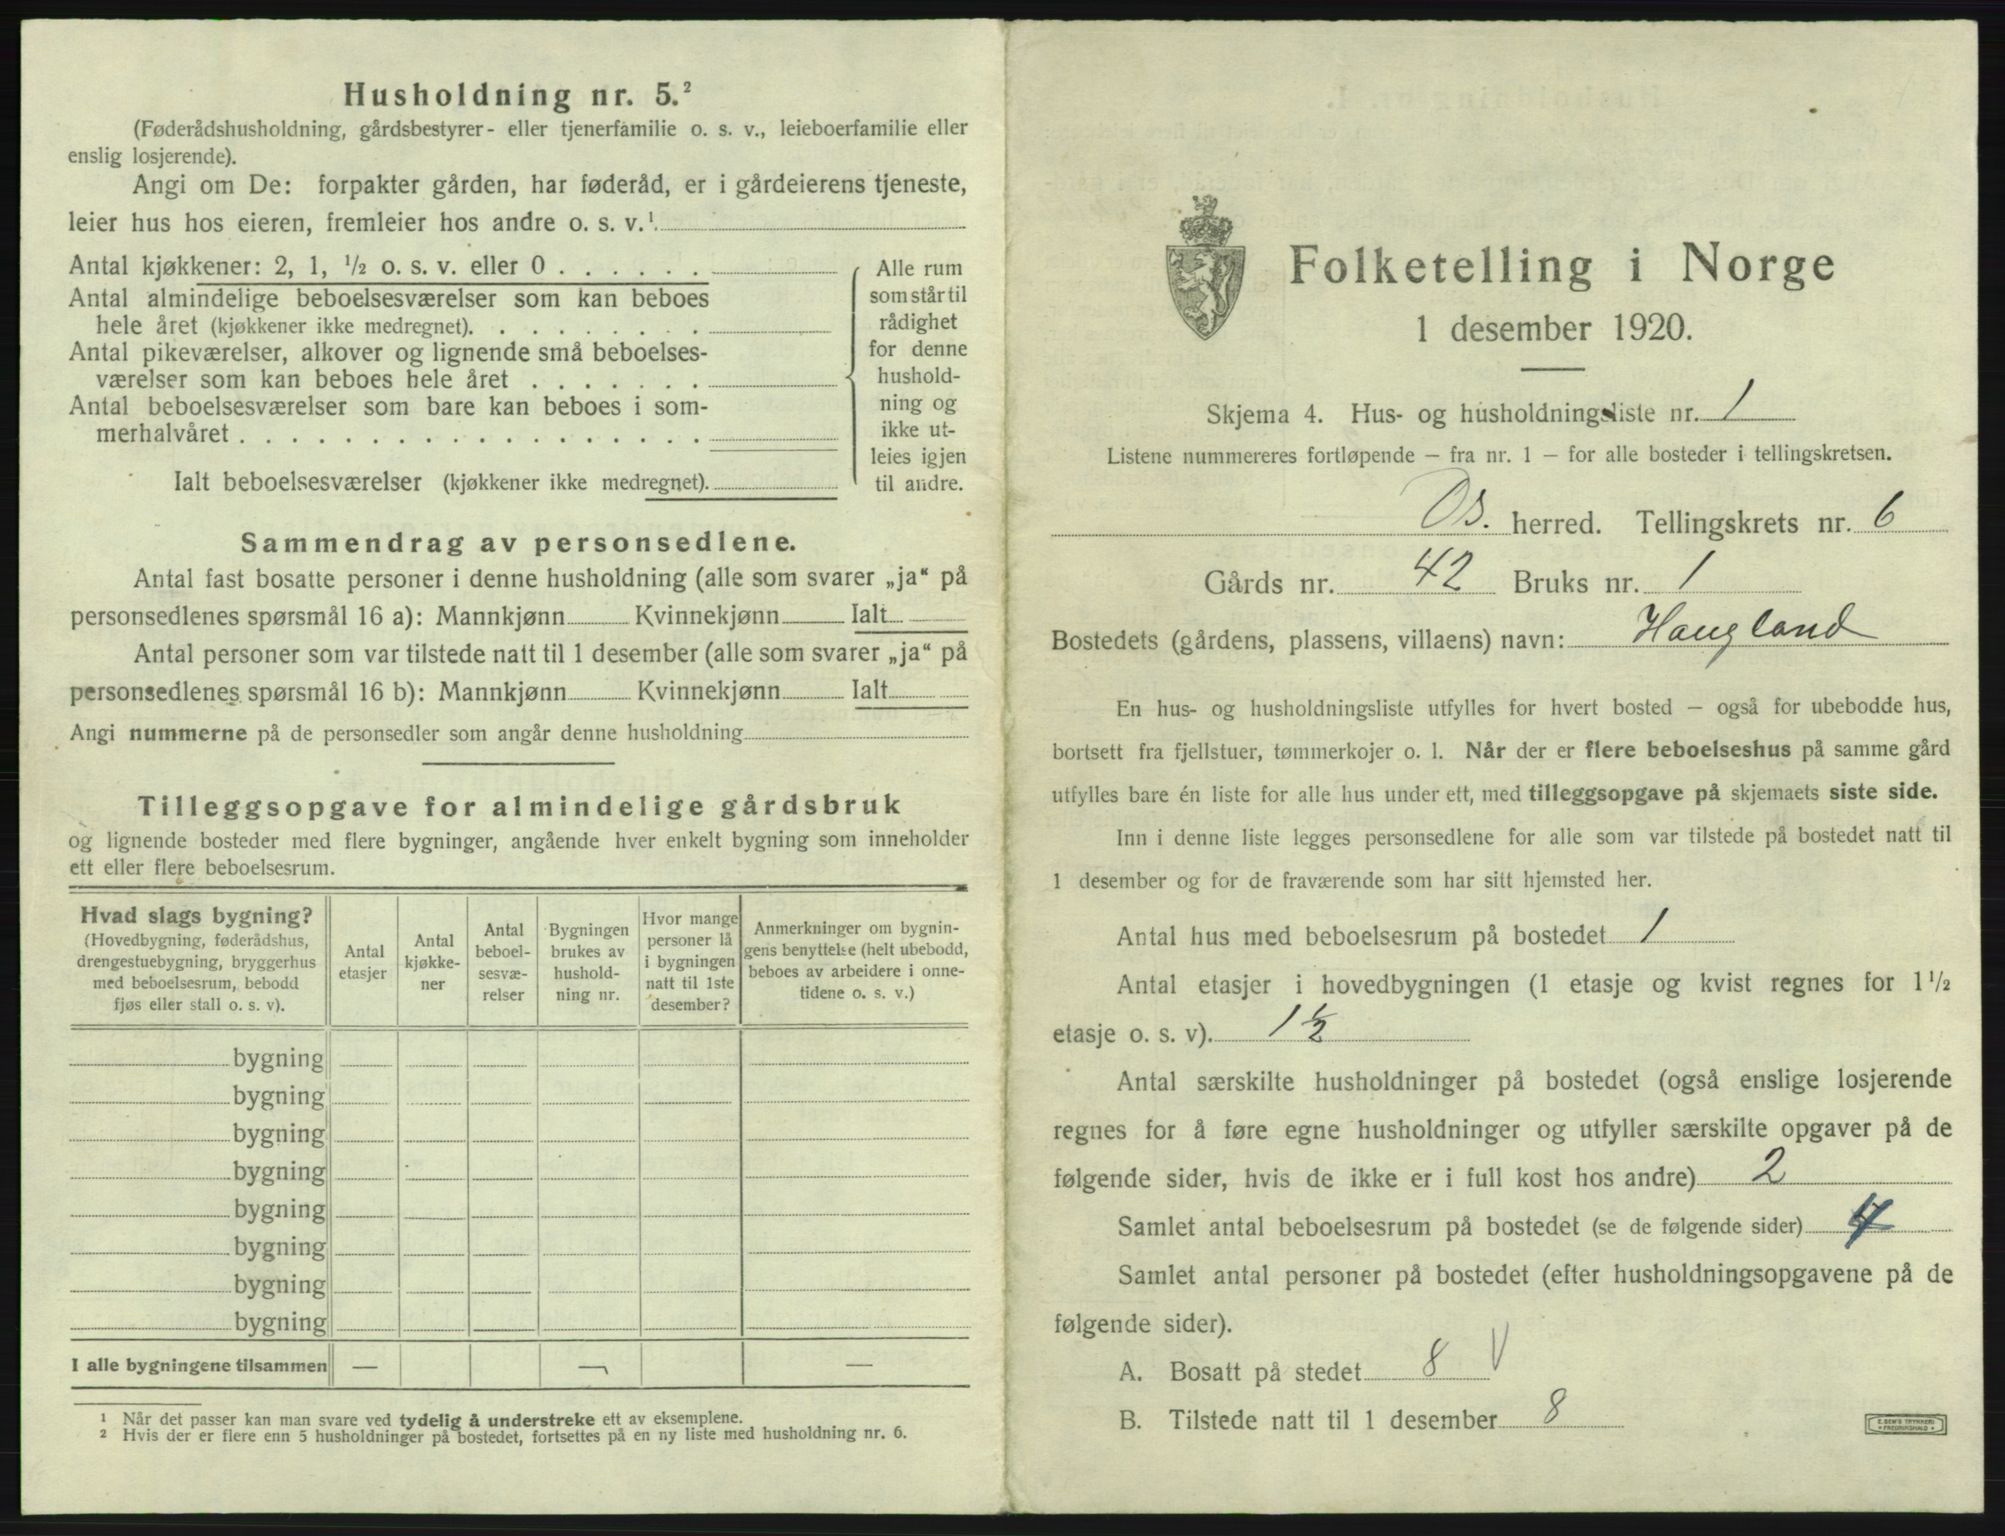 Husholdning nr. 5.²
(Føderådshusholdning, gårdsbestyrer- eller tjenerfamilie o. s. v., leieboerfamilie eller
enslig losjerende).
Angi om De: forpakter gården, har føderåd, er i gårdeierens tjeneste,
leier hus hos eieren, fremleier hos andre o. s. v.¹
Antal kjøkkener: 2, 1, ½ o. s. v. eller 0 . . . . . .
Antal almindelige beboelsesværelser som kan beboes
hele året (kjøkkener ikke medregnet). . . . . . . . .
Antal pikeværelser, alkover og lignende små beboelses-
værelser som kan beboes hele året . . . . . . .
Antal beboelsesværelser som bare kan beboes i som-
merhalvåret . . . . . . . . . . . . . . . . . .
Ialt beboelsesværelser (kjøkkener ikke medregnet).
Alle rum
som står til
rådighet
for denne
hushold-
ning og
ikke ut-
leies igjen
til andre.
Sammendrag av personsedlene.
Antal fast bosatte personer i denne husholdning (alle som svarer „ja“ på
personsedlenes spørsmål 16 a): Mannkjønn Kvinnekjønn Ialt
Antal personer som var tilstede natt til 1 desember (alle som svarer „ja“ på
personsedlenes spørsmål 16 b): Mannkjønn Kvinnekjønn Ialt
Angi nummerne på de personsedler som angår denne husholdning
Tilleggsopgave for almindelige gårdsbruk
og lignende bosteder med flere bygninger, angående hver enkelt bygning som inneholder
ett eller flere beboelsesrum.
Hvad slags bygning?
(Hovedbygning, føderådshus,
drengestuebygning, bryggerhus
med beboelsesrum, bebodd
fjøs eller stall o. s. v).
Antal
etasjer
Antal
kjøkke-
ner
Antal
beboel-
sesvæ-
relser
Bygningen
brukes av
hushold-
ning nr.
Hvor mange
personer lå
i bygningen
natt til 1ste
desember?
Anmerkninger om bygnin-
gens benyttelse (helt ubebodd,
beboes av arbeidere i onne-
tidene o. s. v.)
bygning
bygning
bygning
bygning
bygning
bygning
bygning
bygning
I alle bygningene tilsammen — — —
¹ Når det passer kan man svare ved tydelig å understreke ett av eksemplene.
² Hvis der er flere enn 5 husholdninger på bostedet, fortsettes på en ny liste med husholdning nr. 6.
Folketelling i Norge
1 desember 1920.
Skjema 4. Hus- og husholdningsliste nr. 1
Listene nummereres fortløpende – fra nr. 1 – for alle bosteder i tellingskretsen.
Os. herred. Tellingskrets nr. 6
Gårds nr. 42 Bruks nr. 1
Bostedets (gårdens, plassens, villaens) navn: Haugland
En hus- og husholdningsliste utfylles for hvert bosted – også for ubebodde hus,
bortsett fra fjellstuer, tømmerkojer o. l. Når der er flere beboelseshus på samme gård
utfylles bare én liste for alle hus under ett, med tilleggsopgave på skjemaets siste side.
Inn i denne liste legges personsedlene for alle som var tilstede på bostedet natt til
1 desember og for de fraværende som har sitt hjemsted her.
Antal hus med beboelsesrum på bostedet 1
Antal etasjer i hovedbygningen (1 etasje og kvist regnes for 1½
etasje o. s. v). 1½
Antal særskilte husholdninger på bostedet (også enslige losjerende
regnes for å føre egne husholdninger og utfyller særskilte opgaver på de
følgende sider, hvis de ikke er i full kost hos andre) 2
Samlet antal beboelsesrum på bostedet (se de følgende sider)
Samlet antal personer på bostedet (efter husholdningsopgavene på de
følgende sider).
A. Bosatt på stedet 8 V
B. Tilstede natt til 1 desember 8
E. SEM'S TRYKKERI
FREDRIKSHALD